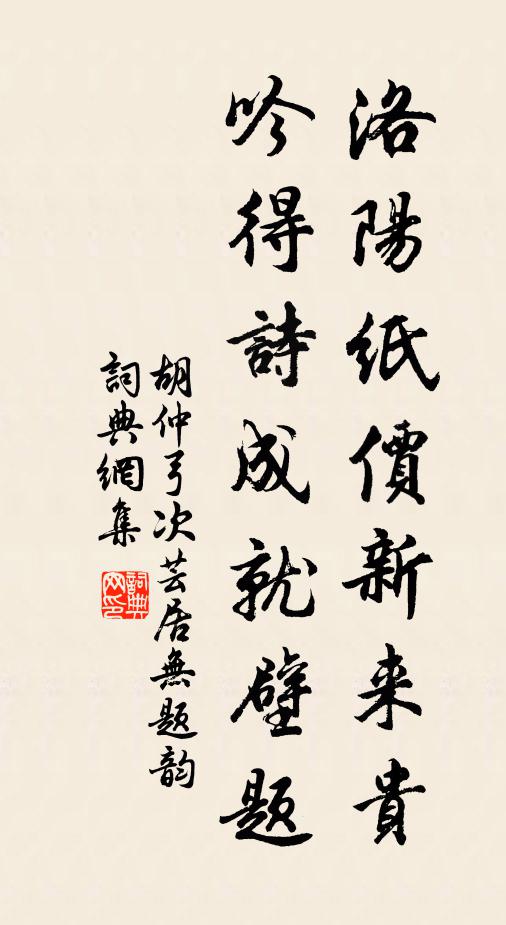 洛陽紙價新来貴
吟得詩成就壁題
胡仲弓次芸居無題韵
詞典網集
詞典网印